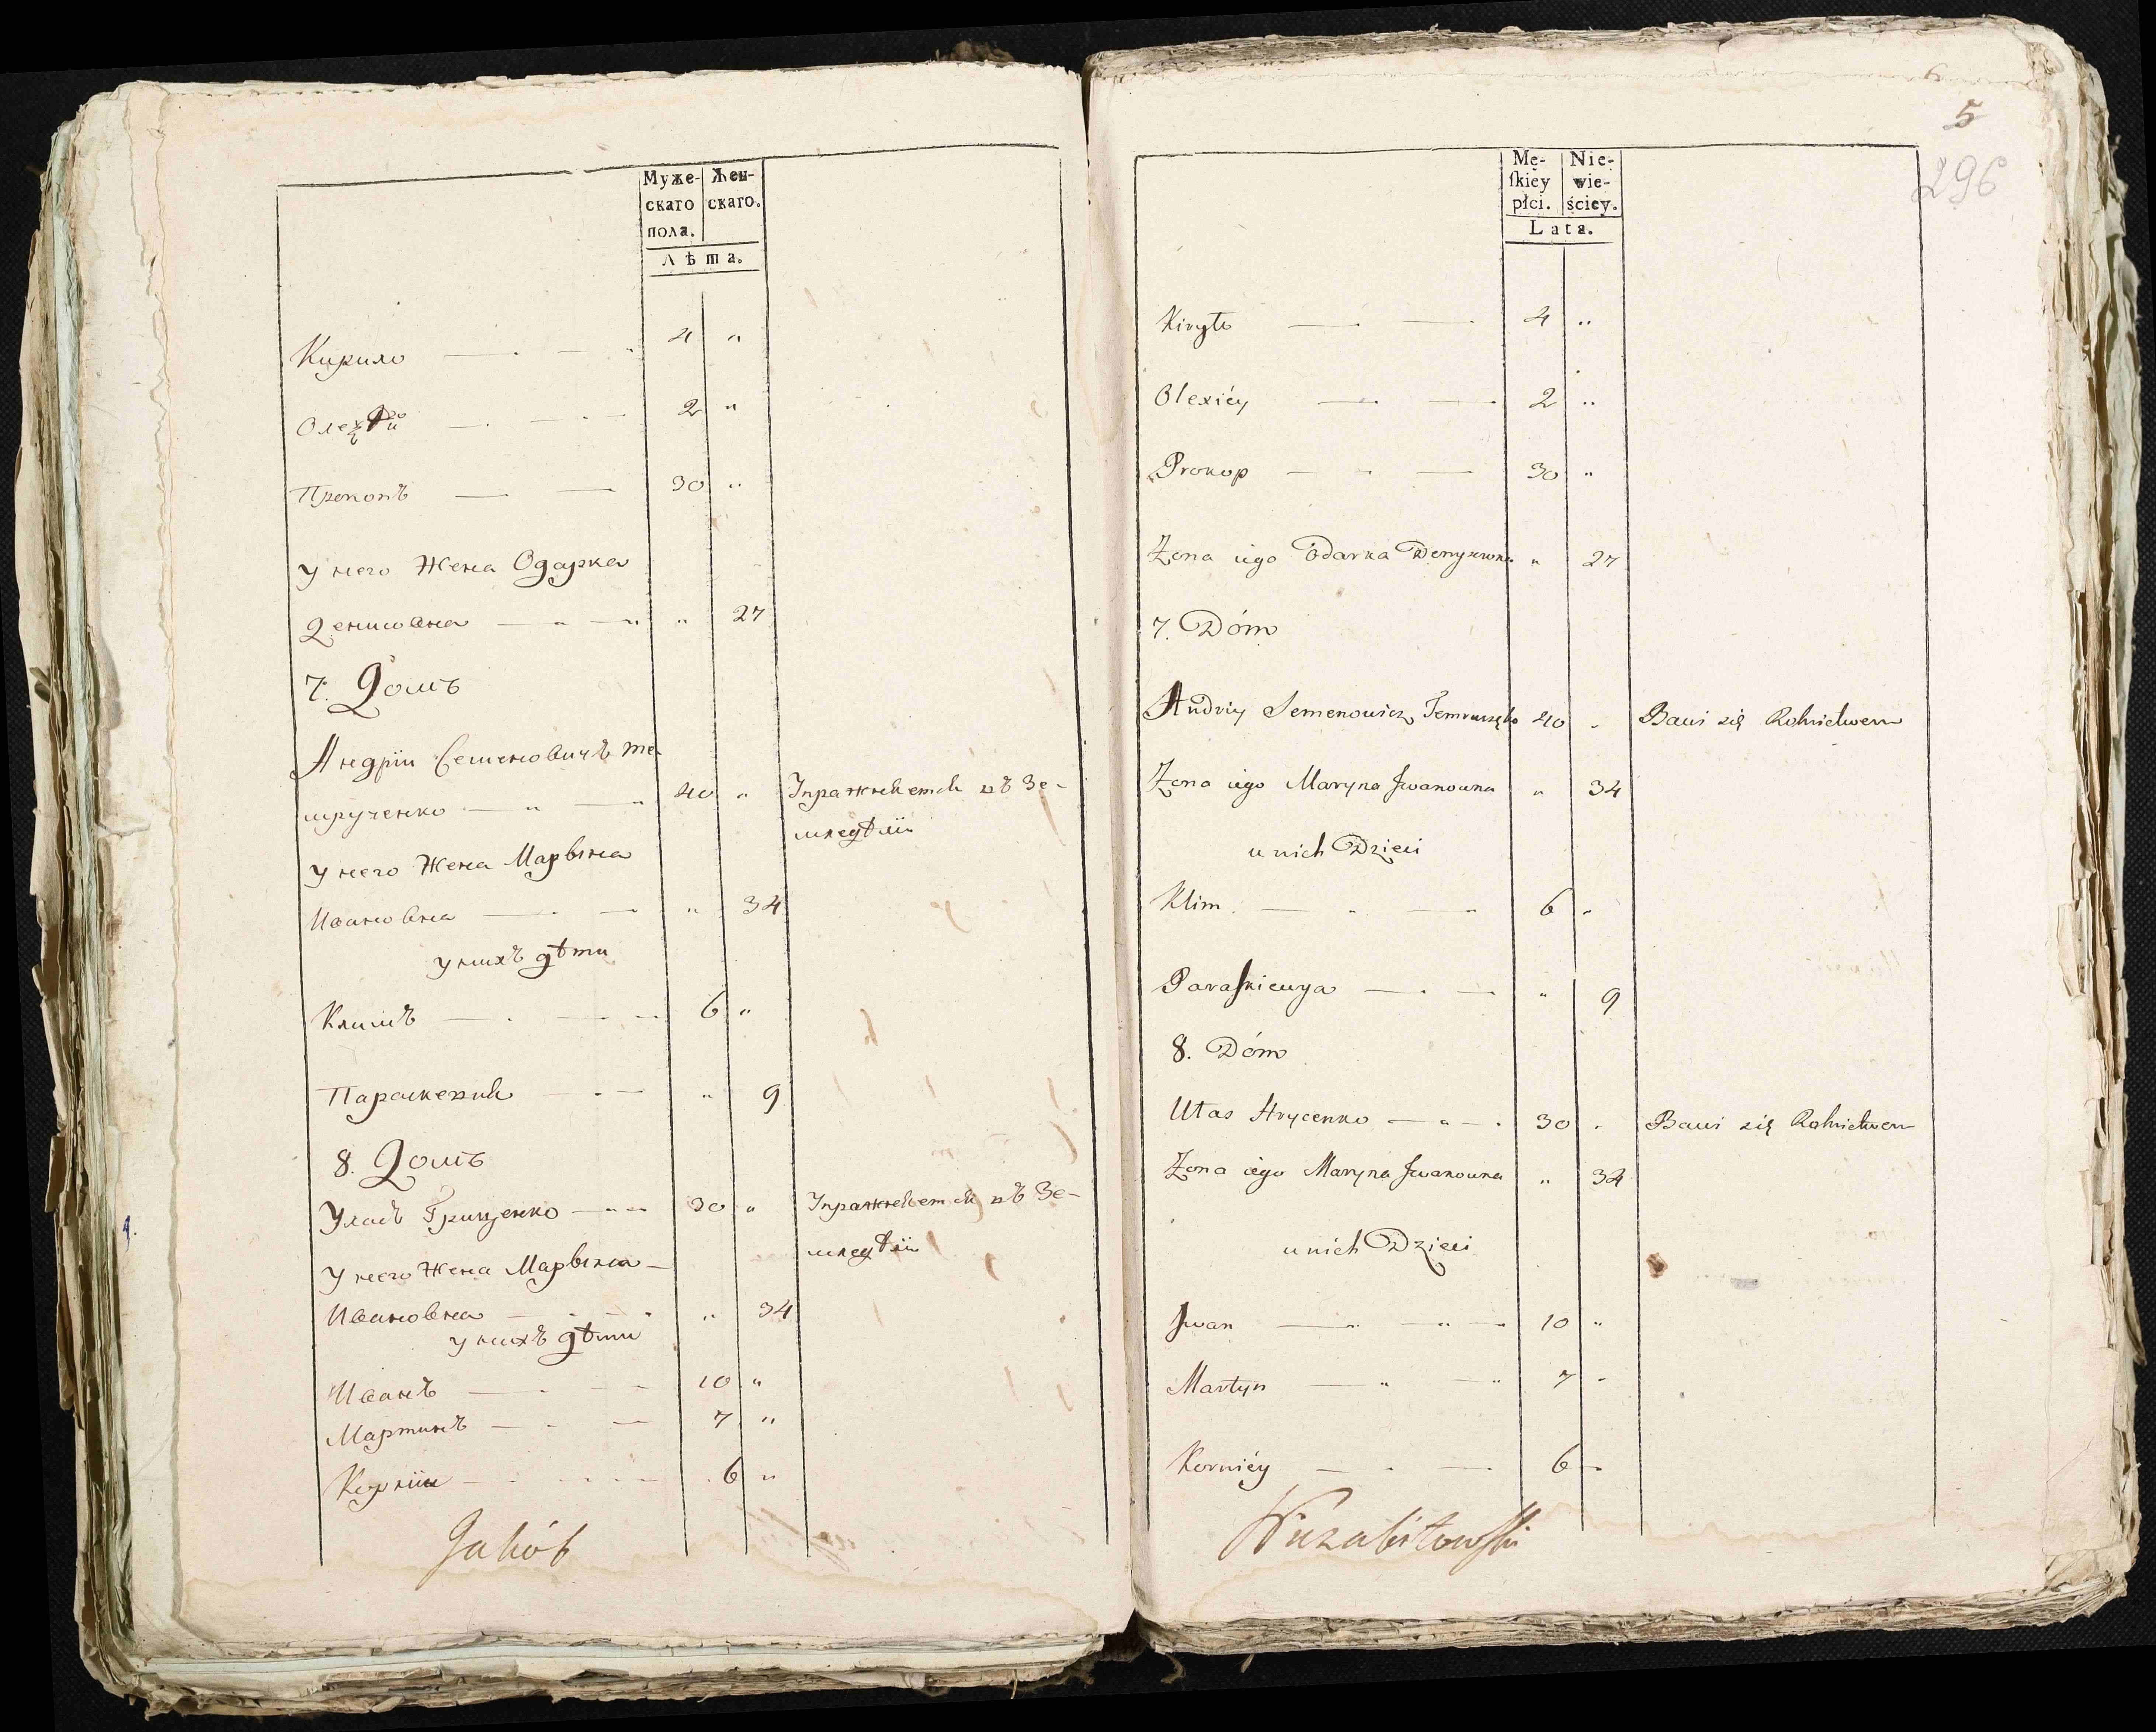 Муже-
скаго
пола.
Жен-
скаго.
Лѣта.
Кирило — — 4 „
Олексѣй — — 2 „
Прокопъ — — 30 „
У него Жена Одарка
Денисовна — „ — „ „ 27
7. Домъ
Андрiй Семеновичъ Те
мрученко — „ — „ 40 „ Упражняется въ Зе-
мледѣлiи
У него Жена Марына
Ивановна — — „ 34
У нихъ дѣти
Климъ — — 6 „
Параскевия — — „ 9
8. Домъ
Уласъ Гриценко — „ „ 30 „ Упражняется въ Зе-
мледѣлiи
У него Жена Марына —
Ивановна — — „ 34
У нихъ дѣти
Иванъ — — 10 „
Мартинъ — — 7 „
Корнiи — — 6 „
Jakób
5
296
Mę-
ſkiey
płci.
Nie-
wie-
ściey.
Lata.
Kiryło — — 4 „
Olexiéy — — 2 „
Prokop — — 30 „
Zona iégo Odarka Denysowna „ 27
7. Dóm
Andriy Semenowicz Temruczęko 40 „ Bawi się Rolnictwem
Zona iégo Maryna Jwanowna „ 34
u nich Dzieci
Klim — „ — „ 6 „
Paraſkiewya — — „ 9
8. Dóm
Ułas Hrycenko — „ — 30 „ Bawi się Rolnictwem
Zona iégo Maryna Jwanowna „ 34
u nich Dzieci
Jwan — „ — „ 10 „
Martyn — „ — „ 7 „
Korniéy — — 6 „